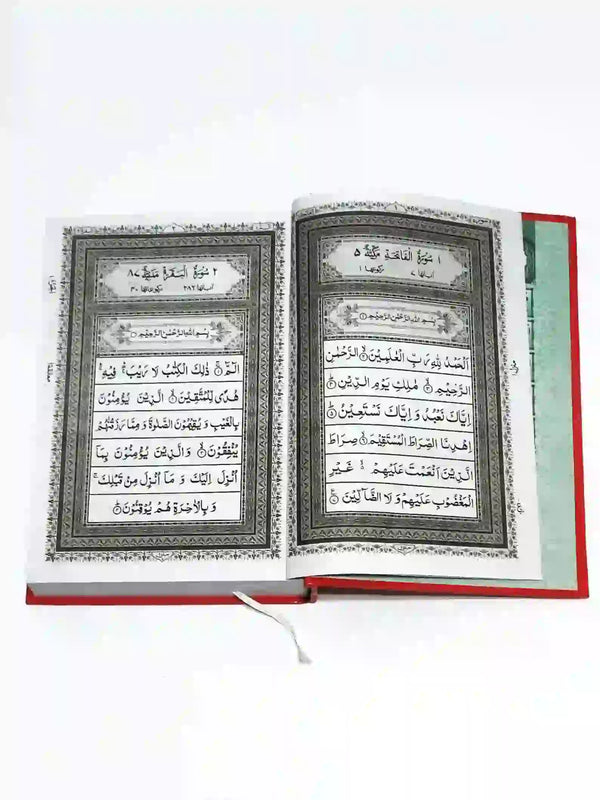 ١ سُوْرَةُ الْفَاتِحَةِ مَكِّيَّةٌ ٥
اٰيَاتُهَا ٧ رُكُوْعُهَا ١
بِسْمِ اللهِ الرَّحْمٰنِ الرَّحِيْمِ ①
اَلْحَمْدُ لِلّٰهِ رَبِّ الْعٰلَمِيْنَ ① الرَّحْمٰنِ
الرَّحِيْمِ ② مٰلِكِ يَوْمِ الدِّيْنِ ③
اِيَّاكَ نَعْبُدُ وَ اِيَّاكَ نَسْتَعِيْنُ ④
اِهْدِنَا الصِّرَاطَ الْمُسْتَقِيْمَ ⑤ صِرَاطَ
الَّذِيْنَ اَنْعَمْتَ عَلَيْهِمْ ⑥ غَيْرِ
الْمَغْضُوْبِ عَلَيْهِمْ وَ لَا الضَّآلِّيْنَ ⑦
٢ سُوْرَةُ الْبَقَرَةِ مَدَنِيَّةٌ ٨٧
اٰيَاتُهَا ٢٨٦ رُكُوْعَاتُهَا ٤٠
بِسْمِ اللهِ الرَّحْمٰنِ الرَّحِيْمِ
الٓمّٓ ① ذٰلِكَ الْكِتٰبُ لَا رَيْبَ فِيْهِ
هُدًى لِّلْمُتَّقِيْنَ ② الَّذِيْنَ يُؤْمِنُوْنَ
بِالْغَيْبِ وَ يُقِيْمُوْنَ الصَّلٰوةَ وَ مِمَّا رَزَقْنٰهُمْ
يُنْفِقُوْنَ ③ وَ الَّذِيْنَ يُؤْمِنُوْنَ بِمَا
اُنْزِلَ اِلَيْكَ وَ مَا اُنْزِلَ مِنْ قَبْلِكَ
وَ بِالْاٰخِرَةِ هُمْ يُوْقِنُوْنَ ④